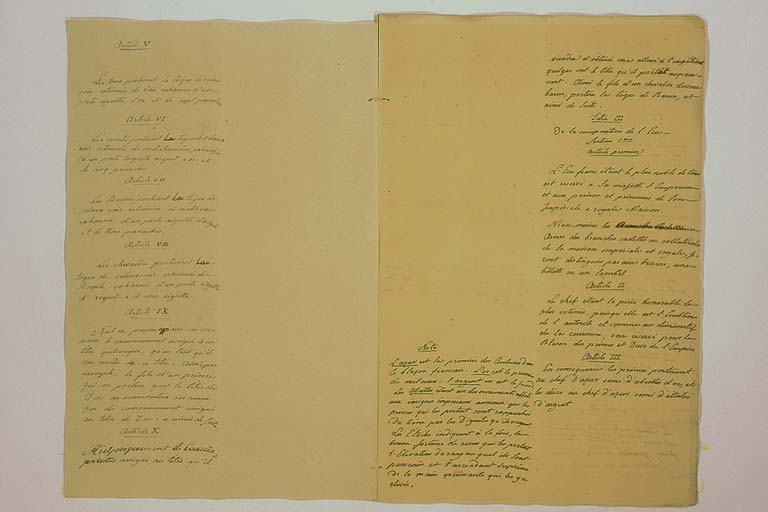 Article V
Les Ducs porteront la toque de velours
noir retroussée de Vair cahamée d'un
porte aigrette d'or et de sept panaches
Article VI
Les comtes porteront la toque de velours
noir retroussée de contrehermine, cahamée
d'un porte aigrette argent et or et
de cinq panaches
Article VII
Les Barons porteront la toque de
velours noir retroussée de contrevair
cahamée d'un porte aigrette d'argent
et de trois panaches.
Article VIII
Les chevaliers porteront la
toque de velours noir, retroussée de
Sinople, cahamée d'un porte aigrette
d'argent et d'une aigrette
Article IX
Nul ne pourra
le couronnement assigné à un
titre quelconque, qu'en tant qu'il
sera revêtu de ce titre. Ainsi par
exemple, le fils d'un prince
qui ne portera que le titre de
Duc ne
que du couronnement assigné
au titre de Duc : et ainsi de suite
Article X
Mais
assigné au titre qu'il
viendra d'obtenir sera allouée à l'impétrant
quelque soit le titre qu'il portait aupara-
vant. Ainsi le fils d'un chevalier devenu
baron, portera la toque de Baron, et
ainsi de suite.
Titre III
De la composition de l'Ecu
Section 1ère
article premier
L'Ecu franc étant le plus noble de tous
est réservé à Sa majesté l'Empereur
et aux princes et princesses de son
Impériale et royale Maison.
Néanmoins les
Armes des branches cadettes ou collatérales
de la maison impériale et royale, se-
ront distinguées par une brisure, une
billette ou un lambel.
Article II
Le chef étant la pièce honorable la
plus estimée, puisqu'elle est l'emblème
de l'autorité et comme un diminutif
de la couronne, sera réservé pour le
Blason des princes et Ducs de l'Empire
Article III
En conséquence les princes porteront
au chef d'azur semé d'abeilles d'or, et
les ducs au chef d'azur semé d'étoiles
d'argent.
Note
L'azur est la première des Couleurs dans
le blazon français : L'or est le premier
des métaux : l'argent en est le second
Les Abeilles étant un des ornements affectés
aux insignes impériaux annonce que les
princes qui les portent sont rapprochés
du trône par les Dignités
Les Etoiles indiquent à la fois, la
bonne fortune de ceux qui les portent
l'élévation du rang auquel ils sont
parvenus et l'ascendant suprême
de la main puissante qui les y a
élevés.